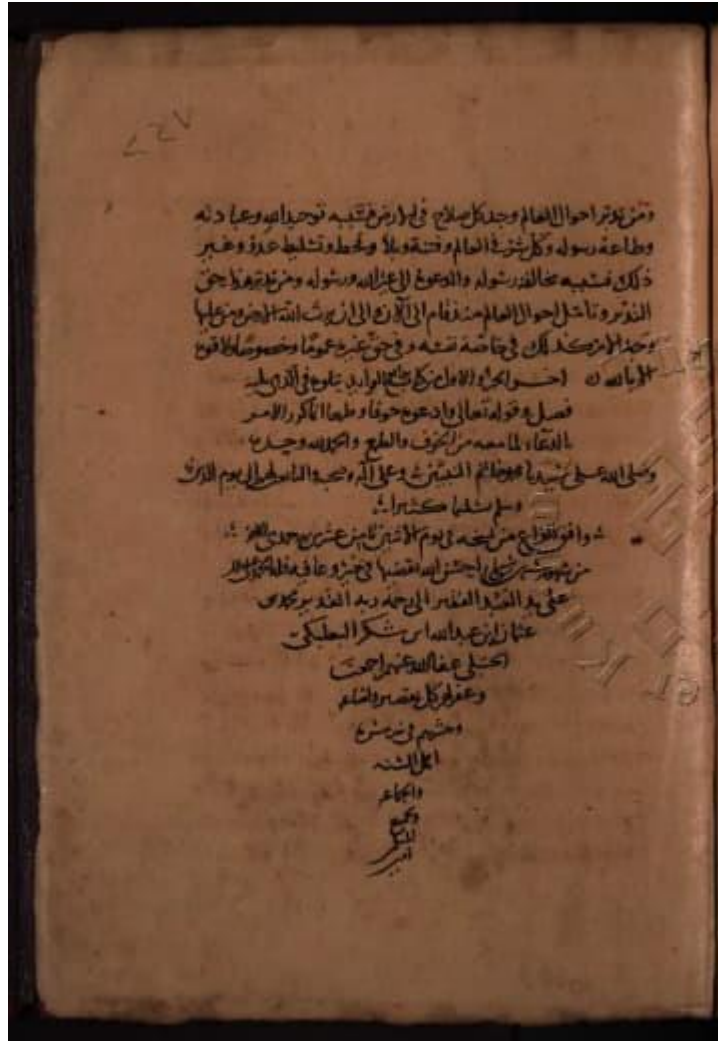 ومن تدبر احوال العالم وجد كل صلاح في الارض فسببه توحيد الله وعبادته
وطاعة رسوله وكل شر في العالم وفتنة وبلا وقحط وتسليط عدو وغير
ذلك فسببه مخالفة رسوله والدعوة الى غير الله ورسوله ومن تدبر هذا حق
التدبر وتامل احوال العالم منذ قام الى الآن والى ان يرث الله الارض ومن عليها
وجد الامر كذلك في خاصة نفسه وفي حق غيره عموما وخصوصا ولا قوة
الا بالله اخر الجزء الاول من يتلوه في الذي يليه
فصل وقوله تعالى وادعوه خوفا وطمعا انما كرر الامر
بالدعاء لما معه من الخوف والطمع والحمد لله وحده
وصلى الله على سيدنا محمد خاتم النبيين وعلى آله وصحبه والتابعين لهم الى يوم الدين
وسلم تسليما كثيرا
وافق الفراغ من نسخه في يوم الاثنين ثامن عشرين
من شهور احسن الله تقضيها في خير وعافية
على يد العبد الفقير الى رحمة ربه القدير محمد بن
عثمان ابن عبد الله ابن شكر البعلبكي
الحنبلي عفا الله عنهم اجمعين
وغفر لهم كل
وحشرهم في زمرة
اهل السنه
والجماعه